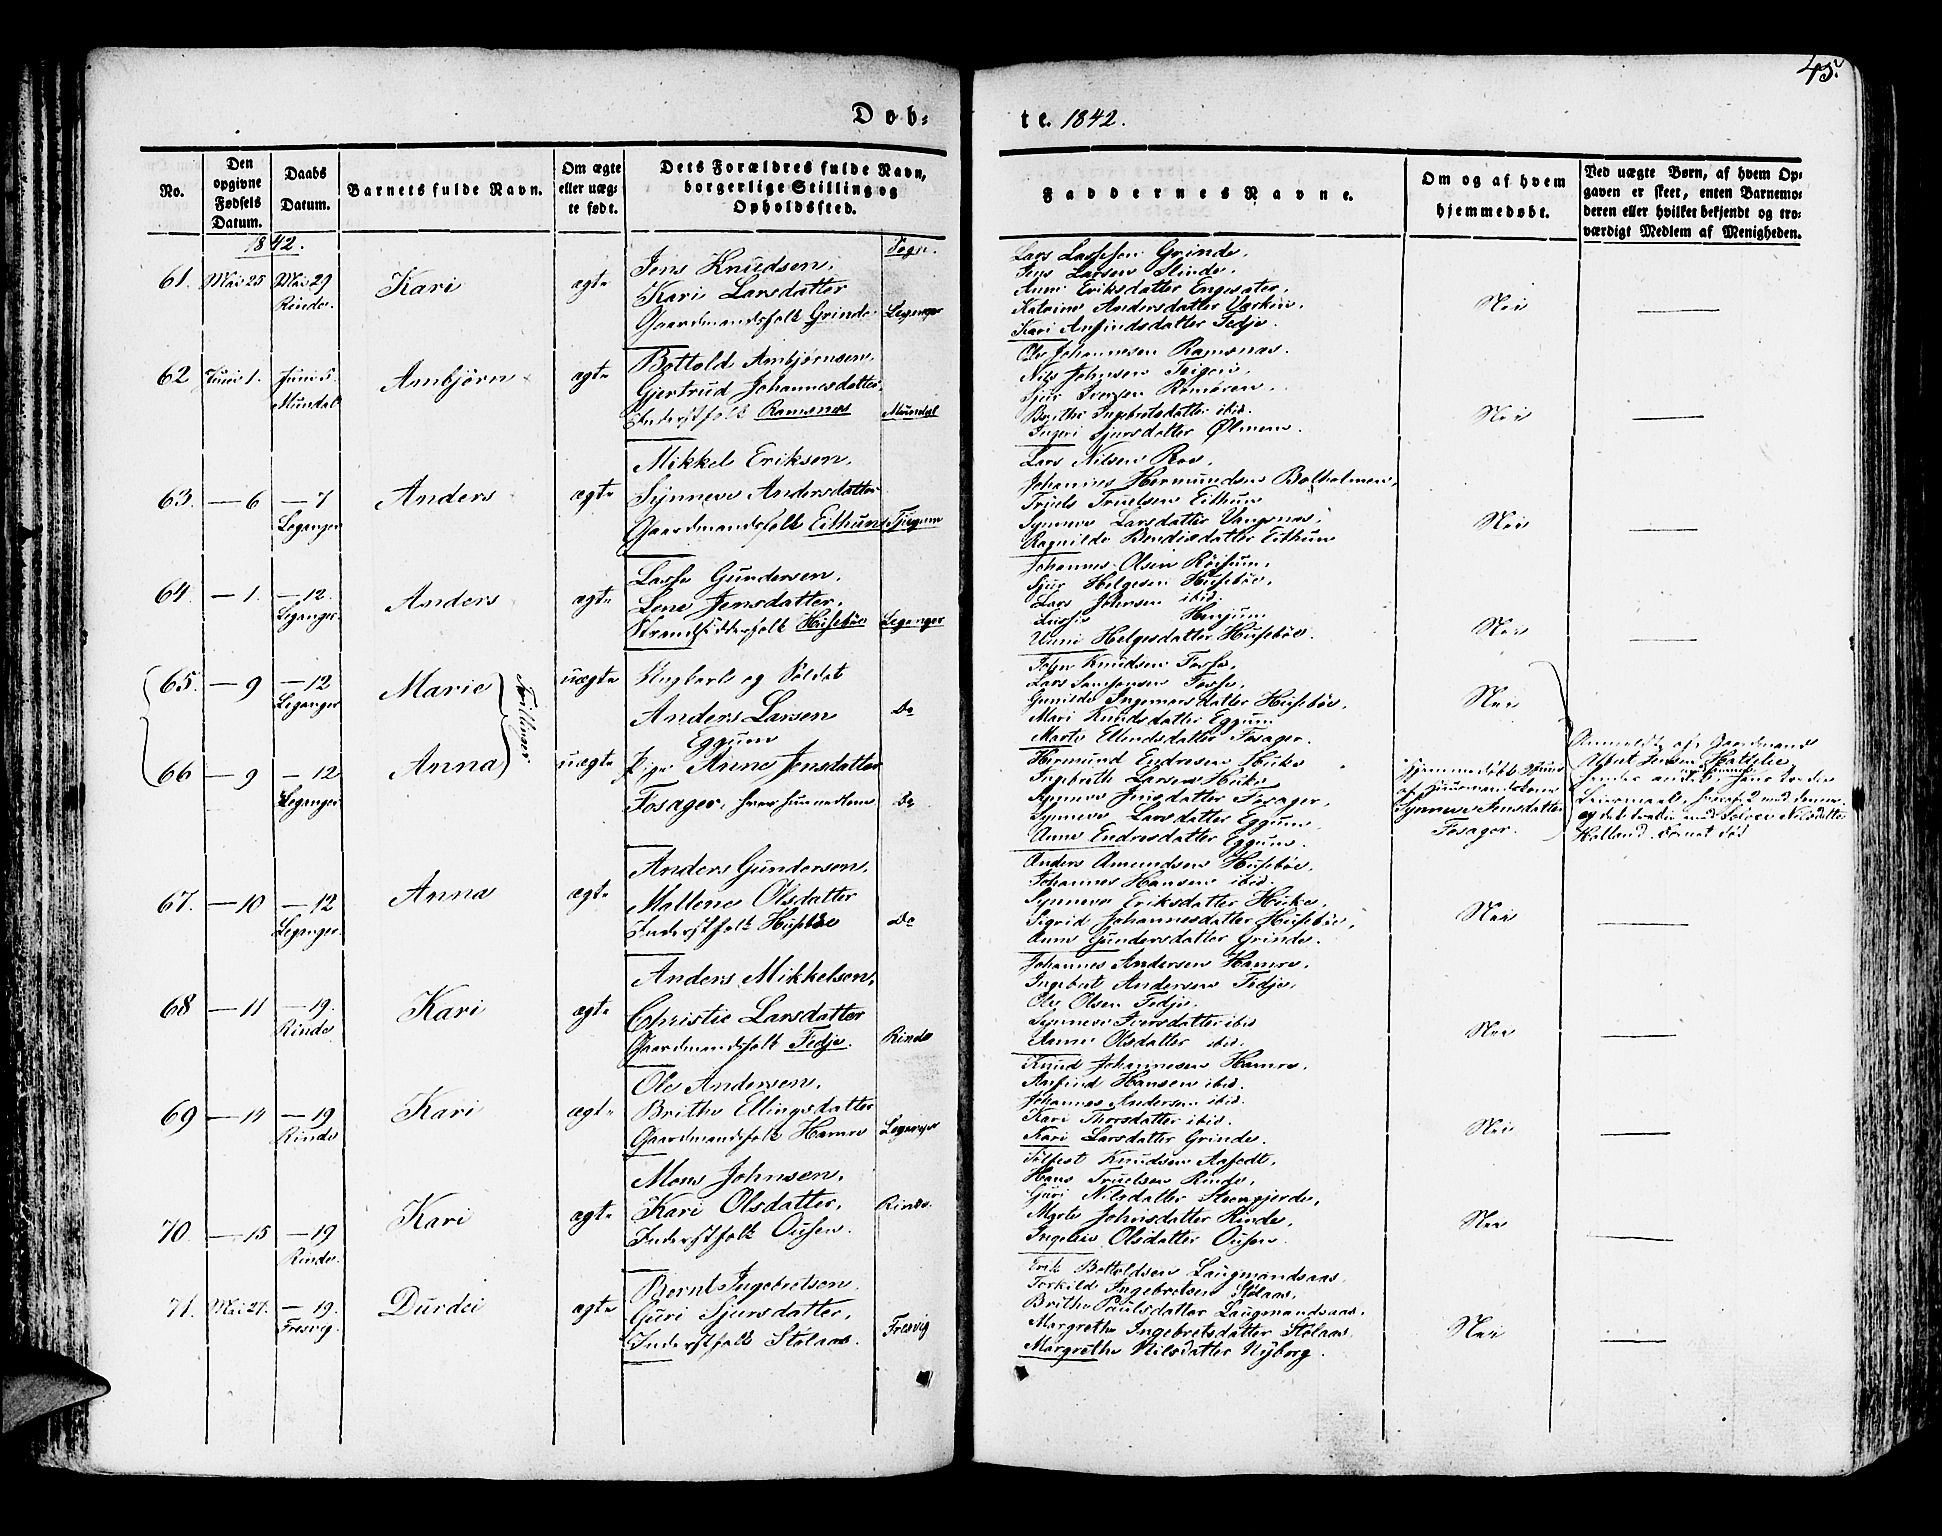 45.
Døb-
te. 1842.
No.
Den opgivne Fødsels Datum.
Daabs Datum.
Barnets fulde Navn.
Om ægte eller uæg- te født.
Dets Forældres fulde Navn, borgerlige Stilling og Opholdssted.
Faddernes Navne.
Om og af hvem hjemmedøbt.
Ved uægte Børn, af hvem Op-
gaven er skeet, enten Barnemo-
deren eller hvilket bekjendt og tro-
værdigt Medlem af Menigheden.
1842.
Sogn.
61. Mai 25 Mai 29 Rinde. Kari ægte
Jens Knudsen,
Kari Larsdatter
Gaardmandsfolk Grinde Leganger
Lars Lassesen Grinde,
Jens Larsen Slinde,
Anne Eriksdatter Engesæter,
Katrine Andersdatter
Kari Anfindsdatter Fedje.
Nei
62 Juni 1. Juni 5. Mundal Ambjørn ægte
Bottold Ambjørnsen,
Gjertrud Johannesdatter,
Inderstfolk Ramsnæs Mundal
Ole Johannesen Ramsnæs.
Nils Johnsen Teigen,
Sjur Iversen Romøren.
Brithe Ingebretsdatter ibid.
Ingeri Sjursdatter Ølmem.
Nei
63. — 6 — 7 Leganger Anders ægte
Mikkel Eriksen,
Synneve Andersdatter
Gaardmandsfolk Eithun Tjugum
Lars Nilsen Roe,
Johannes Hermundsen Bolholmen,
Truels Truelsen Eithun
Synneve Larsdatter Vangsnæs,
Ragnilde Bendixdatter Eithun
Nei
64. — 1. — 12. Leganger Anders ægte
Lasse Gundersen,
Lene Jensdatter,
Strandsidderfolk Husebøe Leganger
Johannes Olsen Røysum,
Sjur Helgesen Husebøe,
Lars Johnsen ibid.
Lasse Henjum
Unni Helgesdatter Husebøe.
Nei
65. — 9 — 12 Leganger Marie uægte
Tvillinger.
Ungkarl og Soldat
Anders Larsen
Eggum Do
John Knudsen Fosse,
Lars Samsonsen Fosse,
Gunilde Ingemarsdatter Husebøe,
Mari Knudsdatter Eggum
Marte Ellendsdatter Fosager.
Nei
66 — 9 — 12 Leganger Anna uægte
Pige Anne Jensdatter
Fosager, hver hunmedlem Do
Hermund Endresen Hicke
Ingebreth Larsen Hicke
Synneve Jensdatter Fosager,
Synneve Larsdatter Eggum,
Anne Endresdatter Eggum.
Hjemmedøbt
af Gaardmandskone
Synneve Ansdatter
Fosager.
Anmeldt af Gaardmand
Albert Jensen
Leiermaal,
67. — 10 — 12 Leganger. Anna ægte
Anders Gundersen,
Mallene Olsdatter
Inderstfolk Husebøe Do
Anders Amundsen Husebøe,
Johannes Hansen ibid.
Synneve Eriksdatter Hicke,
Sigrid Johannesdatter Husebøe,
Anne Gundersdatter Grinde.
Nei
68 — 11 — 19. Rinde Kari ægte
Anders Mikkelsen,
Christie Larsdatter
Gaardmandsfolk Fedje. Rinde
Johannes Andersen Hamre,
Ingebret Andersen Fedje,
Ole Olsen Fedje,
Synneve Iversdatter ibid
Anne Olsdatter ibid.
Nei
69 — 14 — 19 Rinde Kari ægte
Ole Andersen,
Brithe Ellingsdatter
Gaardmandsfolk Hamre Leganger
Knud Johannesen Hamre,
Anfind Hansen ibid.
Johannes Andersen ibid.
Kari Thorsdatter ibid.
Kari Larsdatter Grinde.
Nei
70 — 15 — 19 Rinde. Kari ægte
Mons Johnsen,
Kari Olsdatter,
Inderstfolk Ousen. Rinde.
Tolfest Knudsen Aafedt,
Hans Truelsen Rinde,
Guri Nilsdatter
Myrte Johnsdatter Rinde,
Ingeleiv Olsdatter Ousen.
Nei
71. Mai 27. — 19. Fresvig. Durdei ægte
Bernt Ingebretsen,
Guri Sjursdatter,
Inderstfolk Stølaas. Fresvig
Erik Bottoldsen Laugmandsaas,
Torkild Ingebretsen Stølaas,
Brithe Poulsdatter Laugmandsaas,
Margrethe Ingebretsdatter Stølaas
Margrethe Nilsdatter Nyborg.
Nei